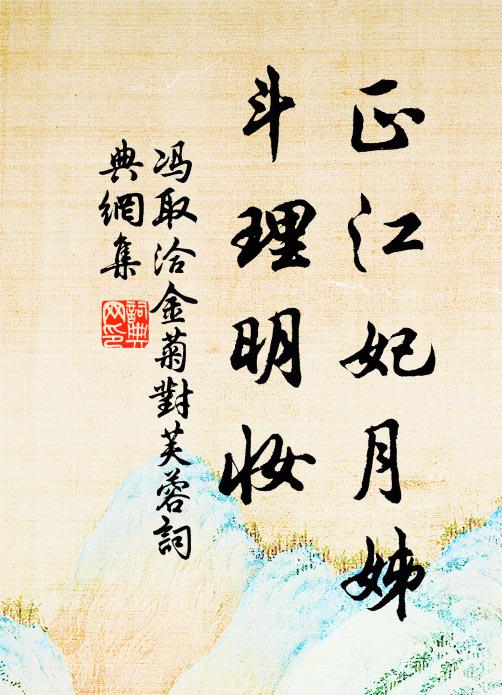 正江妃月姊
斗理明妆
冯取洽金菊對芙蓉詞
典網集
詞典网印